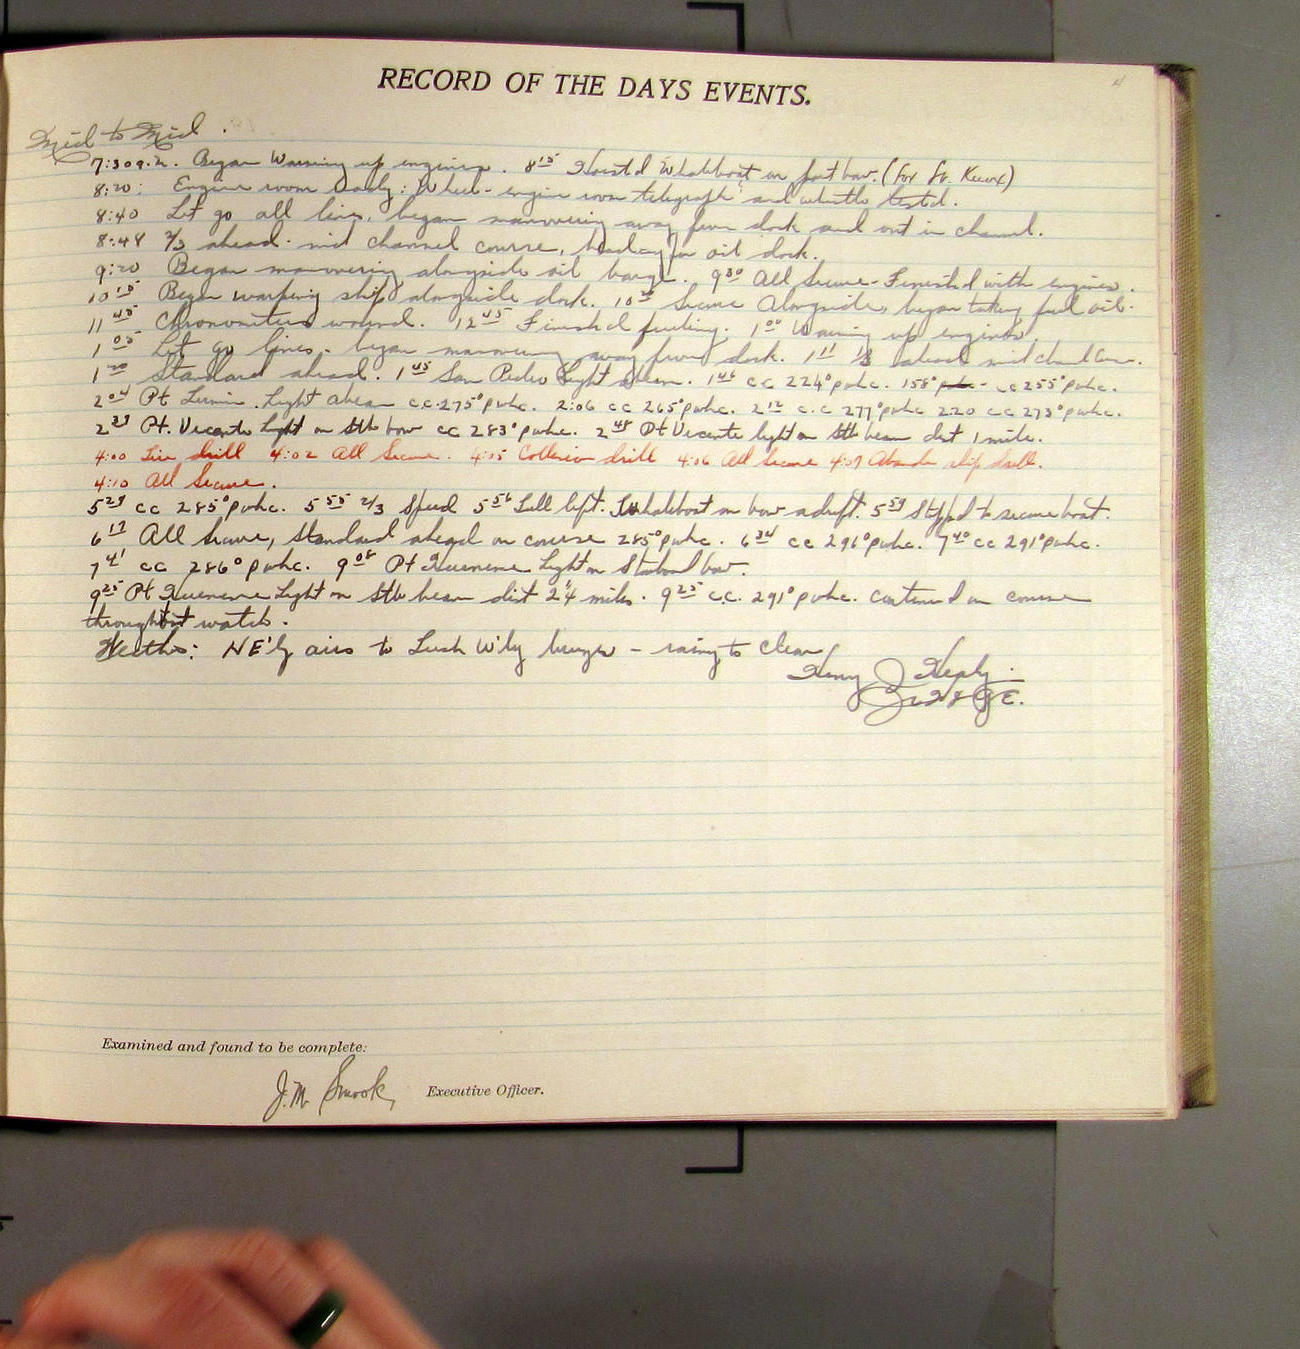 RECORD OF THE DAYS EVENTS.
Mid to Mid.
7:30 a.m. Began Warming up engines. 8 15 Hoisted Whaleboat on port bow. (for Ft. Knox)
8:20: Engine room ready: Wheel - engine room telegraph and whistle tested.
8:40 Let go all lines, began maneuvering away from dock and out in channel.
8:48 2/3 ahead - mid channel course, heading for oil dock.
9:20 Began maneuvering alongside oil barge. 9 30 All Secure - Finished with engines.
10 15 Began warping ship alongside dock. 10 Secure Alongside, began taking fuel oil.
11 45 Chronometers wound. 12 45 Finished fueling. 1 00 Warming up engines.
1 05 Let go lines - began maneuvering away from dock. 1 11 ahead mid channel
1 20 Standard ahead. 1 45 San Pedro Light abeam. 1 46 cc 224° pshc. 158° cc 255° pshc.
2 04 Pt Light abeam c.c. 275° pshc. 2:06 cc 265° pshc. 2 12 c.c 277° pshc 220 cc 273° pshc.
2 23 Pt. Vicente Light on Stb bow cc 283° pshc. 2 48 Pt Vicente light on Stb beam dist 1 mile.
4:00 Fire drill 4:02 All Secure. 4:05 Collision drill 4:06 All Secure 4:07 Abandon ship drill.
4:10 All Secure.
5 29 cc 285° pshc. 5 55 2/3 Speed 5 56 Full left. Whaleboat on bow adrift. 5 59 Stopped to secure boat.
6 13 All Secure, Standard ahead on course 285° pshc. 6 34 cc 296° pshc. 7 40 cc 291° pshc.
7 41 cc 286° pshc. 9 08 Pt Hueneme Light on Starboard bow.
9 25 Pt Hueneme Light on Stb beam dist 2 1/4 miles. 9 25 c.c. 291° pshc. continued on course
throughout watch.
Weather: NE'ly airs to fresh W'ly breeze - rainy to clear
Henry J.
Examined and found to be complete:
J.M. Executive Officer.